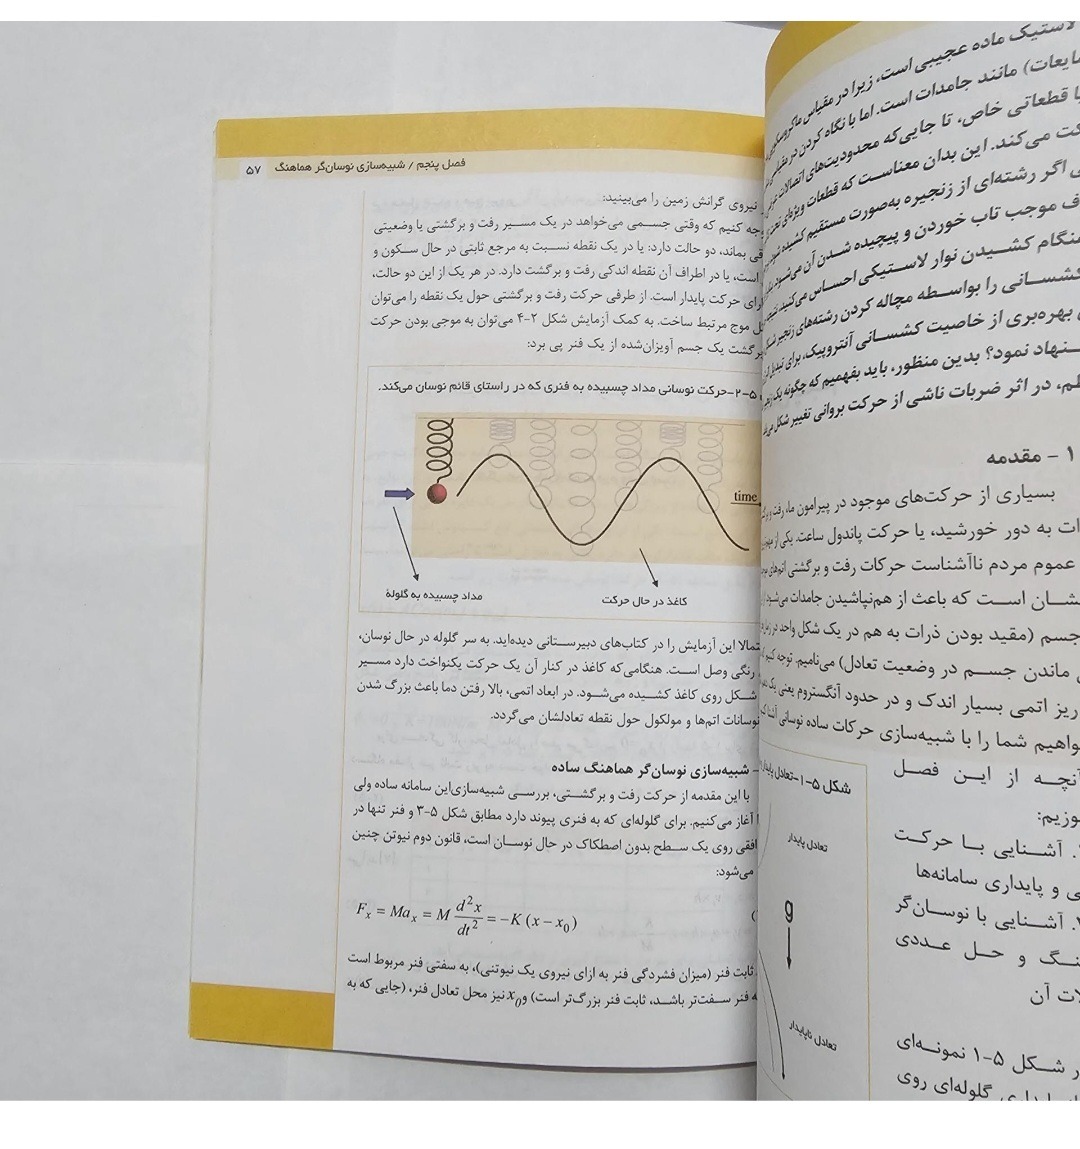 لاستیک ماده عجیبی است، زیرا در مقیاس ماکروسکوپی
مایعات) مانند جامدات است. اما با نگاه کردن در
قطعاتی خاص، تا جایی‌که محدودیت‌های اتصالات
می‌کند. این بدان معناست که قطعات ویژه‌ای
اگر رشته‌ای از زنجیره به‌صورت مستقیم کشیده شود،
موجب تاب خوردن و پیچیده شدن آن می‌شود.
هنگام کشیدن نوار لاستیکی احساس می‌کنید،
کشسانی را بواسطه مچاله کردن رشته‌های زنجیر
بهره‌بری از خاصیت کشسانی آنتروپیک، برای تبدیل
نمود؟ بدین منظور، باید بفهمیم که چگونه یک
در اثر ضربات ناشی از حرکت براونی تغییر شکل
۱ – مقدمه
بسیاری از حرکت‌های موجود در پیرامون ما، رفت و
به دور خورشید، یا حرکت پاندول ساعت. یکی از
عموم مردم ناآشناست حرکات رفت و برگشتی اتم‌های
است که باعث از هم‌نپاشیدن جامدات می‌شود.
جسم (مقید بودن ذرات به هم در یک شکل واحد در
ماندن جسم در وضعیت تعادل) می‌نامیم. توجه کنیم
ریز اتمی بسیار اندک و در حدود آنگستروم یعنی یک
شما را با شبیه‌سازی حرکات ساده نوسانی آشنا
آنچه از این فصل
آشنایی با حرکت
و پایداری سامانه‌ها
آشنایی با نوسان‌گر
و حل عددی
آن
شکل ۵-۱ نمونه‌ای
گلوله‌ای روی
شکل ۵-۱-تعادل پایدار
تعادل پایدار
g
تعادل ناپایدار
فصل پنجم / شبیه‌سازی نوسان‌گر هماهنگ ۵۷
نیروی گرانش زمین را می‌بینید:
کنیم که وقتی جسمی می‌خواهد در یک مسیر رفت و برگشتی یا وضعیتی
بماند، دو حالت دارد: یا در یک نقطه نسبت به مرجع ثابتی در حال سکون و
است، یا در اطراف آن نقطه اندکی رفت و برگشت دارد. در هر یک از این دو حالت،
حرکت پایدار است. از طرفی حرکت رفت و برگشتی حول یک نقطه را می‌توان
موج مرتبط ساخت. به کمک آزمایش شکل ۲-۴ می‌توان به موجی بودن حرکت
گشت یک جسم آویزان‌شده از یک فنر پی برد:
۵-۲-حرکت نوسانی مداد چسبیده به فنری که در راستای قائم نوسان می‌کند.
time
مداد چسبیده به گلوله
کاغذ در حال حرکت
این آزمایش را در کتاب‌های دبیرستانی دیده‌اید. به سر گلوله در حال نوسان،
رنگی وصل است. هنگامی‌که کاغذ در کنار آن یک حرکت یکنواخت دارد مسیر
شکل روی کاغذ کشیده می‌شود. در ابعاد اتمی، بالا رفتن دما باعث بزرگ شدن
نوسانات اتم‌ها و مولکول حول نقطه تعادلشان می‌گردد.
- شبیه‌سازی نوسان‌گر هماهنگ ساده
با این مقدمه از حرکت رفت و برگشتی، بررسی شبیه‌سازی‌این سامانه ساده ولی
آغاز می‌کنیم. برای گلوله‌ای که به فنری پیوند دارد مطابق شکل ۵-۳ و فنر تنها در
افقی روی یک سطح بدون اصطکاک در حال نوسان است، قانون دوم نیوتن چنین
می‌شود:
Fx = Max = M d²x/dt² = -K (x - x0)
ثابت فنر (میزان فشردگی فنر به ازای نیروی یک نیوتنی)، به سفتی فنر مربوط است
فنر سفت‌تر باشد، ثابت فنر بزرگ‌تر است) و x0 نیز محل تعادل فنر، (جایی که به